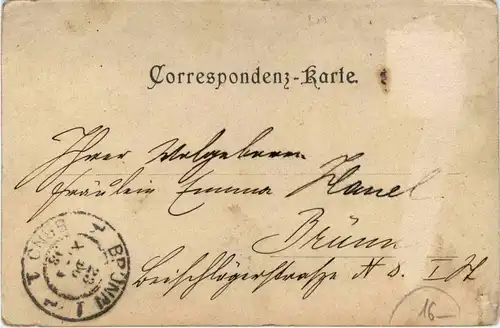 Correspondenz-Karte.
Ihrer Wolgeboren
Fräulein Emma Hanel
Brünn
Beischlägerstraße N 8. I. St
BRÜNN 1
BRNO 1
16-